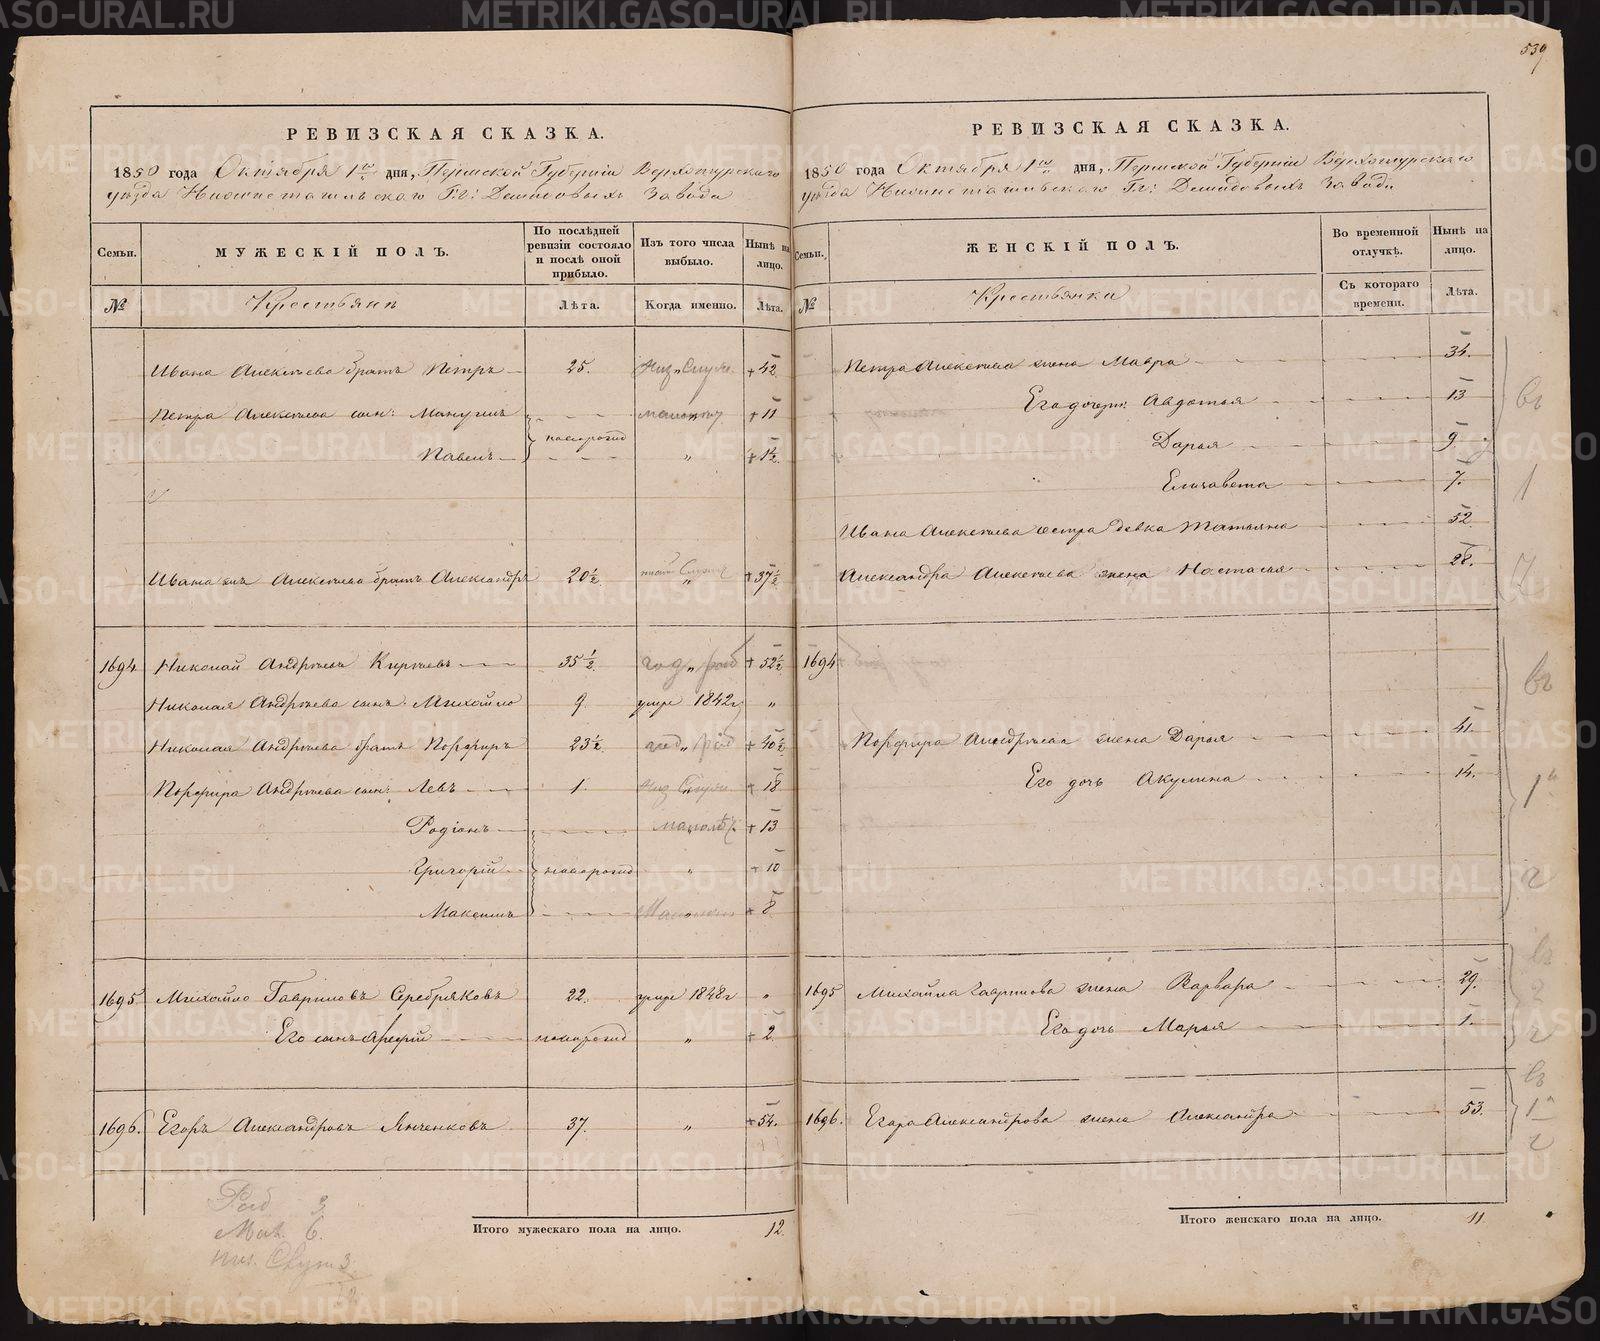 539
РЕВИЗСКАЯ СКАЗКА.
1850 года Октября 1го дня, Пермской Губернiи Верхотурскаго
уѣзда Нижнетагильскаго Гг: Демидовыхъ Завода
Семьи.
МУЖЕСКIЙ ПОЛЪ.
По послѣдней ревизiи состояло и послѣ оной прибыло.
Изъ того числа выбыло.
Нынѣ на лицо.
№
Крестьянъ
Лѣта.
Когда именно.
Лѣта.
Ивана Алексѣева братъ Петръ 25. Низ. Служ. +42
Петра Алексѣева сын: Мануилъ малолѣт +11
новорожд
Павелъ " +1½
Ивана жъ Алексѣева братъ Александръ 20½ +37½
1694 Николай Андрѣевъ 35½ год. раб +52½
Николая Андрѣева сынъ Михайло 9 умре 1842г "
Николая Андрѣева братъ Порфиръ 23½ год. раб +40½
Порфира Андрѣева сын: Левъ 1 Низ Служ +18
Родiонъ малолѣт +13
Григорiй новорожд " +10
Максимъ Малолѣт +8
1695 Михайло Гавриловъ Серебряковъ 22. умре 1848г "
Его сынъ новорожд " +2
1696. Егоръ Александровъ Янченковъ 37. " +54.
Раб 3
Мал. 6.
низ. Служ 3
12
Итого мужескаго пола на лицо. 12.
РЕВИЗСКАЯ СКАЗКА.
1850 года Октября 1го дня, Пермской Губернiи Верхотурскаго
уѣзда Нижнетагильскаго Гг: Демидовыхъ Завода
Семьи.
ЖЕНСКIЙ ПОЛЪ.
Во временной отлучкѣ.
Нынѣ на лицо.
№
Крестьянка
Съ котораго времени.
Лѣта.
Петра Алексѣева жена Мавра 34.
Его дочери: Авдотья 13
Дарья 9
Елизавета 7.
Ивана Алексѣева сестра девка Татьяна 32
Александра Алексѣева жена Настасья 28.
1694
Порфира Андрѣева жена Дарья 41.
Его дочь Акулина 14.
1695 Михайла Гаврилова жена Варвара 29.
Его дочь Марья 1.
1696. Егора Александрова жена Александра 53.
Итого женскаго пола на лицо. 11.
METRIKI.GASO-URAL.RU